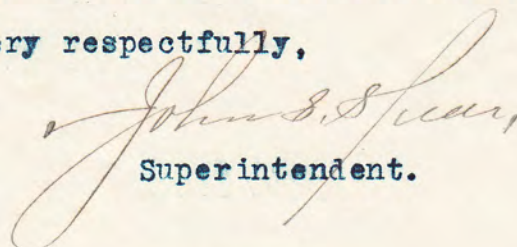 ery respectfully,
John S. Spear,
Superintendent.